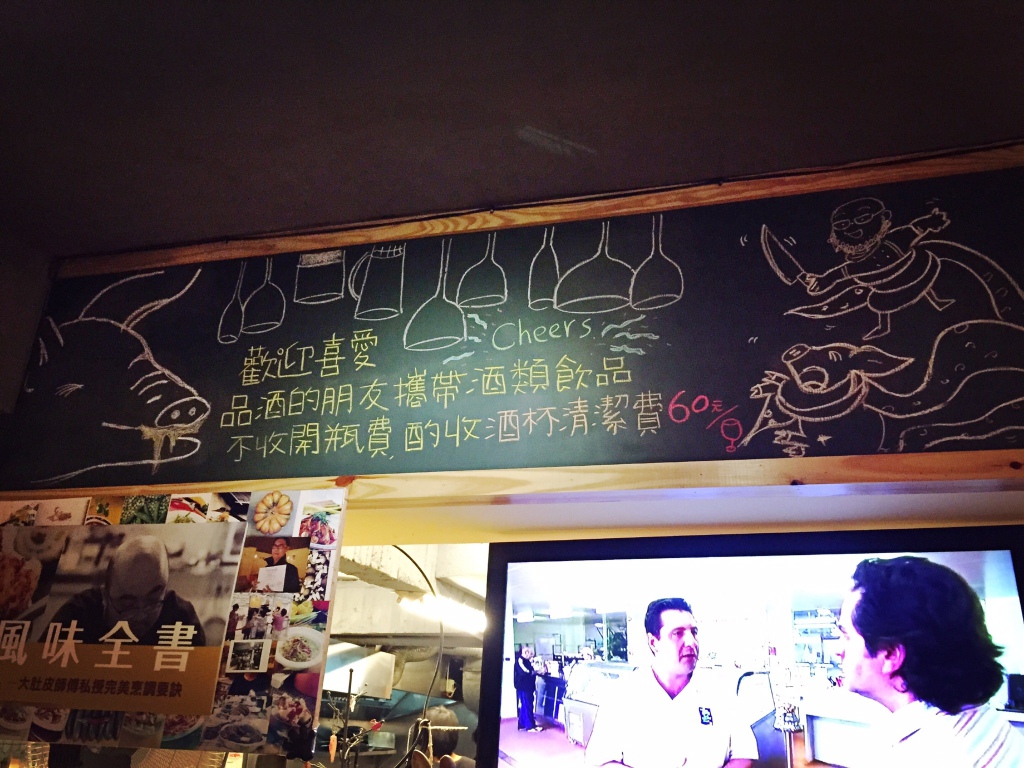 Cheers
歡迎喜愛
品酒的朋友攜帶酒類飲品
不收開瓶費,酌收酒杯清潔費60元/
風味全書
大肚皮師傅私授完美烹調要訣